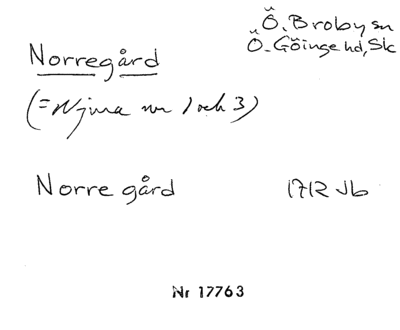 Ö. Broby sn
Norregård
Ö. Göinge hd, Sk
(= Njura nr 1 och 3)
Norre gård 1712 Jb
Nr 17763